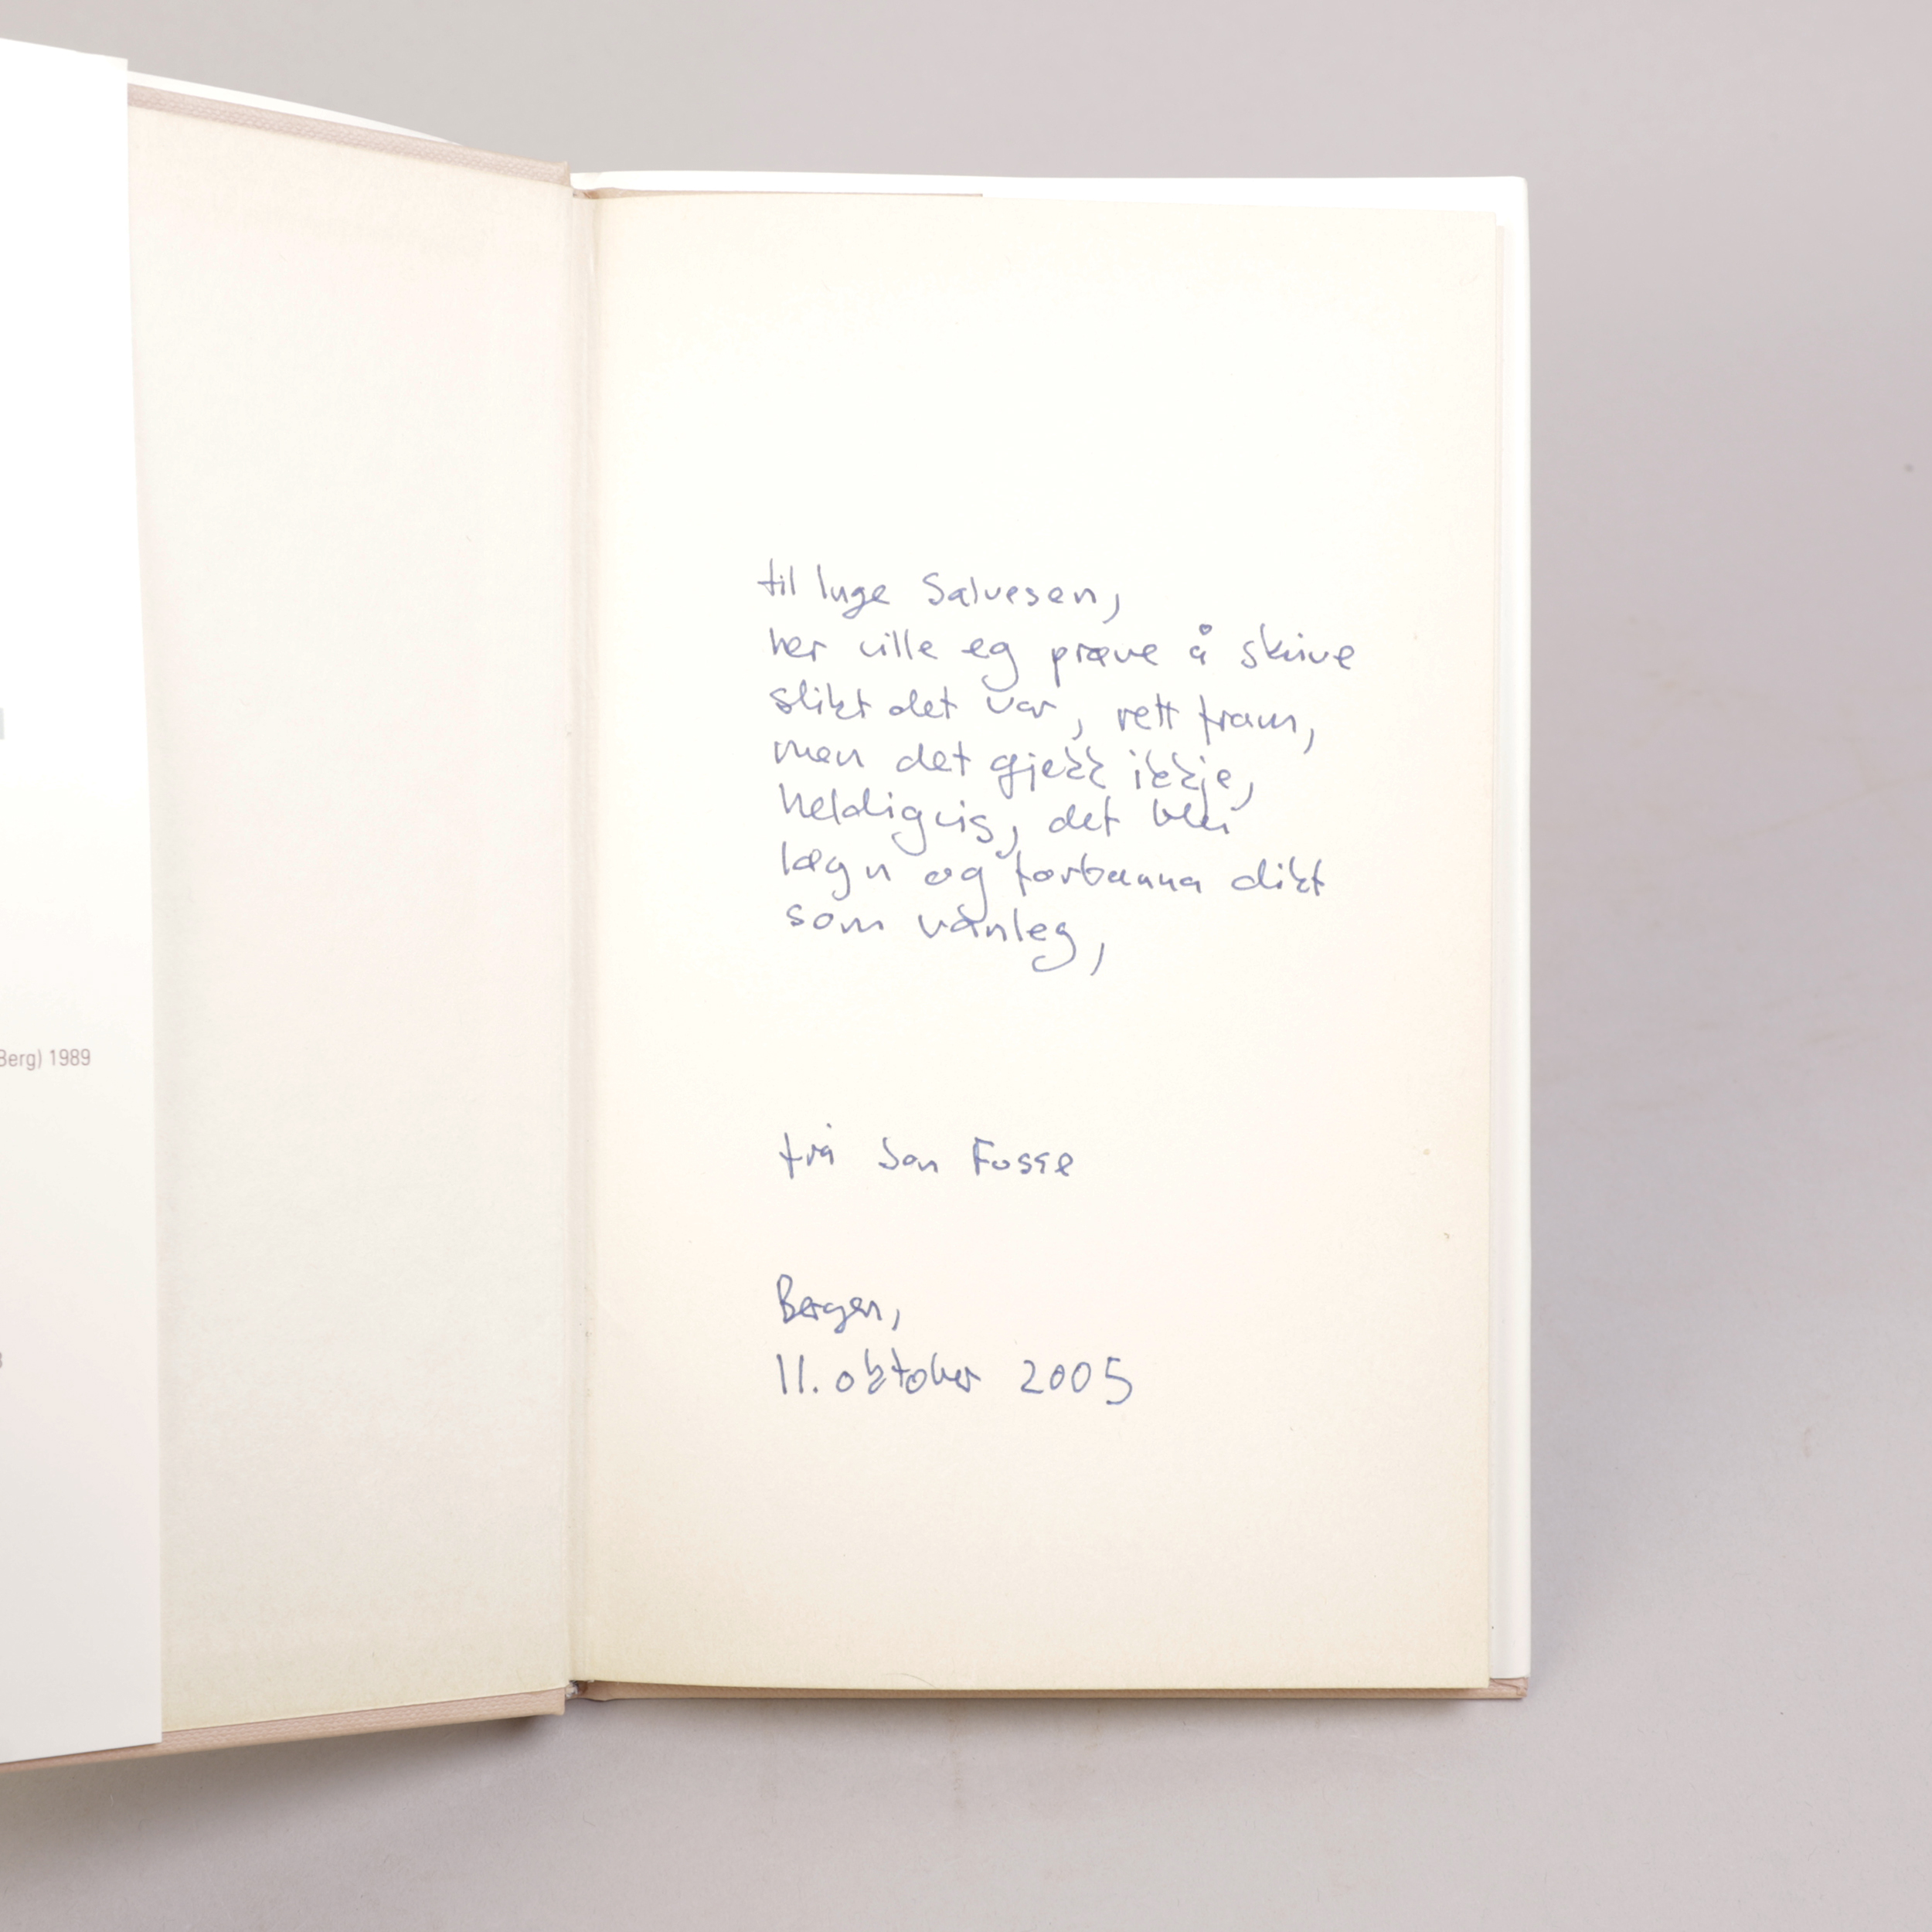 Berg) 1989
til Inge Salvesen,
her ville eg prøve å skrive
slikt det var, rett fram,
men det gjekk ikkje,
heldigvis, det blei
løgn og forbanna dikt
som vanleg,
frå Jon Fosse
Bergen,
11. oktober 2005